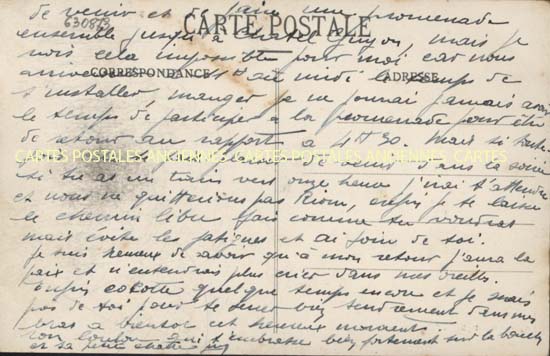 de venir et de faire une promenade
630873
CARTE POSTALE
ensemble jusqu'à Chatel Guyon, mais je
vois cela impossible pour moi car nous
CORRESPONDANCE
ADRESSE
au midi le temps de
s'installer, manger je ne pourrai jamais avoir
le temps de participer à la promenade pour être
de retour au rapport à 4H30. Mais si toute
CARTES POSTALES ANCIENNES CARTES POSTALES ANCIENNES CARTES POSTALES ANCIENNES
dans la soirée
si tu as un train vers onze heures j'irai t'attendre
et nous ne quitterions pas Riom, enfin je te laisse
le chemin libre fais comme tu voudras
mais évite les fatigues et ai soin de toi.
Je suis heureux de savoir qu'à mon retour j'aurai la
paix et n'entendrai plus crier dans mes oreilles.
Enfin cocotte quelque temps encore et je serais
près de toi pour te serrer bien tendrement dans mes
bras à bientôt cet heureux moment.
ton loulou qui t'embrasse bien fortement sur la bouche
et sa petite chatte